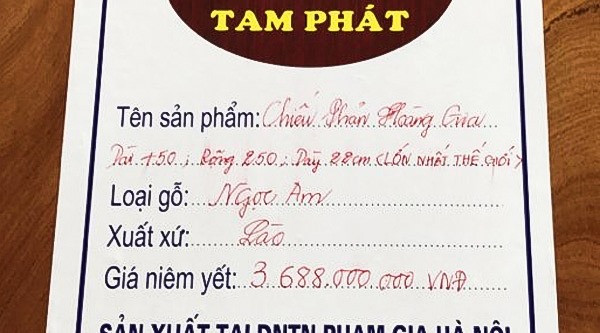 TAM PHÁT
Tên sản phẩm: Chiếu Phản Hoàng Gia
Dài +50; Rộng 250; Dày 22cm <LỚN NHẤT THẾ GIỚI>
Loại gỗ: Ngọc Am
Xuất xứ: Lào
Giá niêm yết: 3.688.000.000 VNĐ
SẢN XUẤT TẠI DNTN PHẠM GIA HÀ NỘI